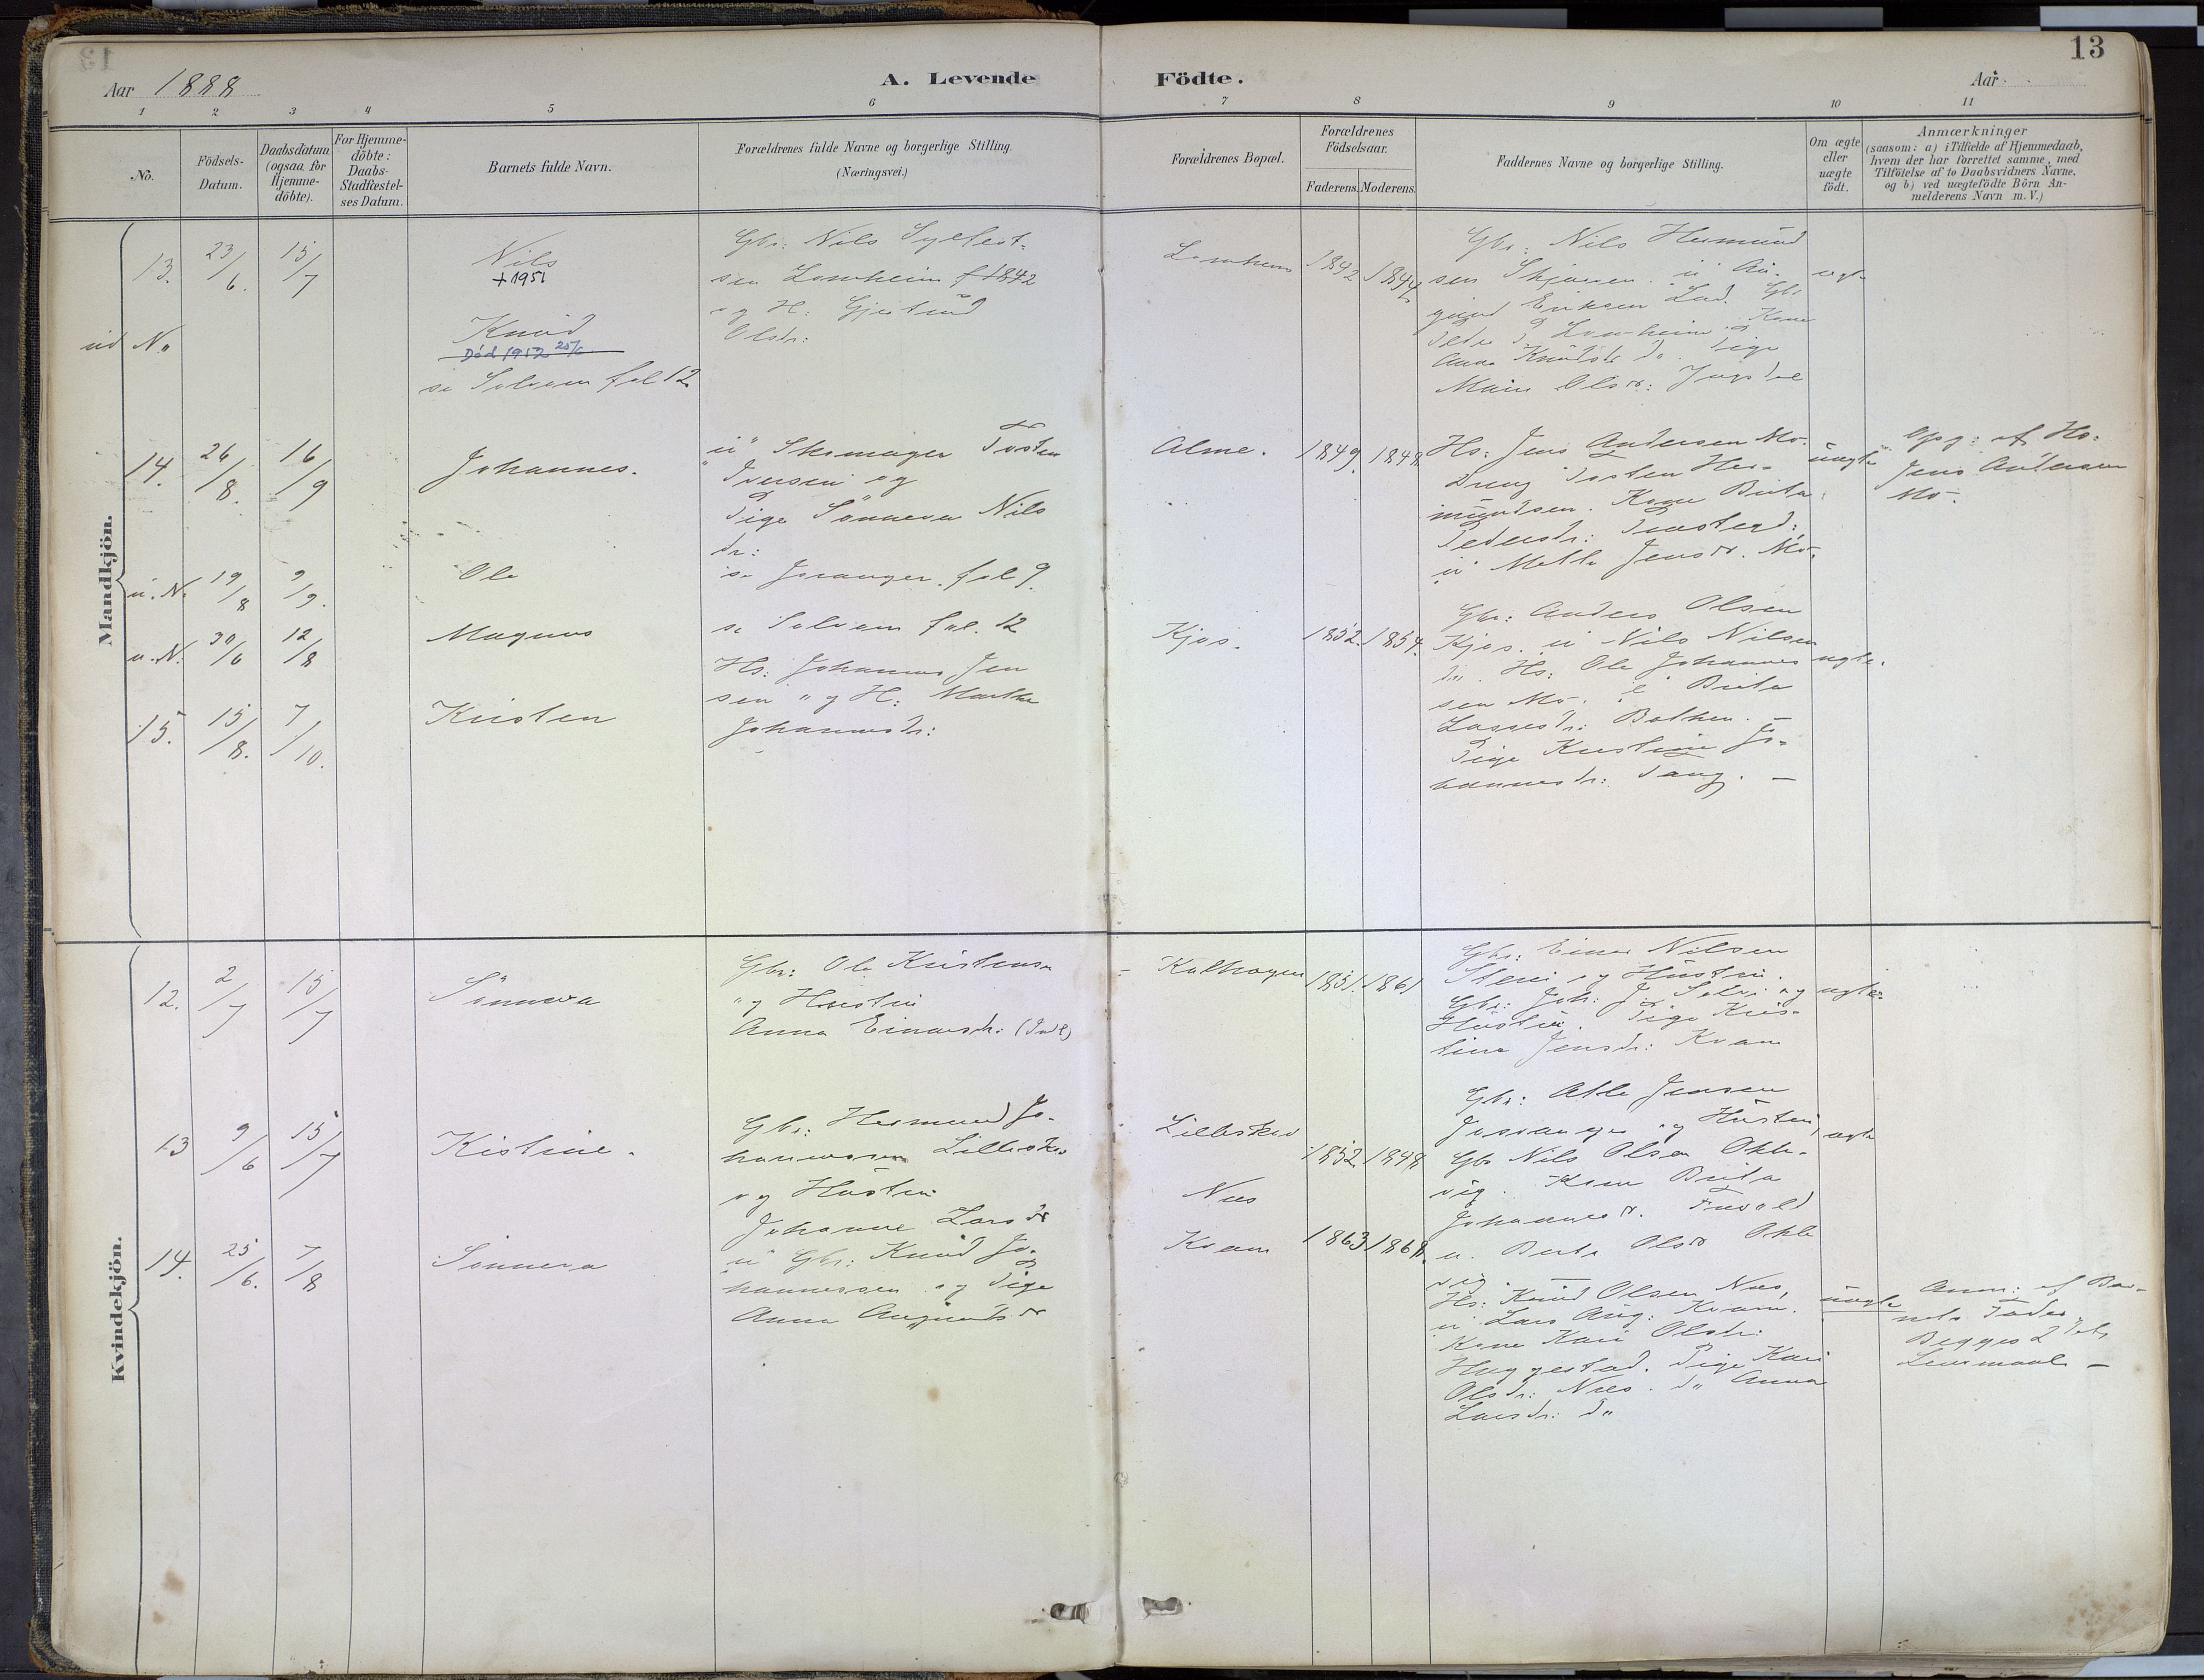 13
Aar 1888
A. Levende Födte.
Aar
1 2 3 4 5 6 7 8 9 10 11
No.
Födsels-Datum.
Daabsdatum (ogsaa for Hjemme-döbte).
For Hjemme-döbte: Daabs-Stadfæstel-ses Datum.
Barnets fulde Navn.
Forældrenes fulde Navne og borgerlige Stilling.
(Næringsvei.)
Forældrenes Bopæl.
Forældrenes Födselsaar.
Faderens. Moderens.
Faddernes Navne og borgerlige Stilling.
Om ægte eller uægte födt.
Anmærkninger
(saasom: a) i Tilfælde af Hjemmedaab,
hvem der har forrettet samme, med
Tilföielse af to Daabsvidners Navne,
og b) ved uægtefödte Börn An-
melderens Navn m. V.)
Mandkjön.
13. 23/6. 15/7
Nils
+1951
Gbr: Nils Sylfest-
sen Lomheim f 1842
og H: Gjertrud
Olsdr:
Lomheim
1842 1844
Gbr: Nils Hermund
sen Skjæren.
Anna Knudsdr do. Pige
Mari Olsdr:
ud No
Knud
Död 1952 25/6
se Solvorn fol 12
14. 26/8. 16/9
Johannes.
u Skomager Tosten
Iversen og
Pige Sönneva Nils
dr:
Alme.
1849. 1848
Hs: Jens Andersen Mo.
Dreng Tosten Her-
mundsen. Kone Brita
Pedersdr:
u Mette Jensdr. Mo.
uægte
Opg: af Hs:
Jens Andersen
Mo.
u. N. 19/8 9/9.
Ole
se Joranger. fol 9.
u. N. 30/6 12/8
Magnus
se Solvorn fol. 12
15. 15/8. 7/10.
Kristen
Hs: Johannes Jen
sen og H: Marthe
Johannesdr:
Kjos.
1852. 1854.
Gbr: Anders Olsen
Kjos. u Nils Nilsen
do. Hs: Ole Johannes
sen Mo. Brita
Lassesdr: Bolken.
Pige Kristine Jo-
hannesdr: Tang. —
ægte.
Kvindekjön.
12. 2/7 15/7
Sönneva
Gbr: Ole Kristens.
og Hustru
Anna Einarsdr:
Kalhagen
1851. 1861
Gbr: Einar Nilsen
og Hustru.
Gbr: Joh: J. og
Hustru. Pige Kris-
tine Jensdr: Kvam
ægte
13 9/6 15/7
Kistine.
Gbr: Hermund Jo-
hannesen Lilleskov
og Hustru
Johanne Larsdr
Lilleskov
1852 1848
Gbr: Atle Jensen
Joranger og Hustru,
Gbr Nils Olsen Okle-
vig. Kone Brita
Johannesdr.
u. Berte Olsdr Okle
vig
ægte
14. 25/6. 7/8
Sönneva
u Gbr: Knud Jo-
hannessen og Pige
Anna Augundsdr
Næs
Kvam
1863 1868.
Hs: Knud Olsen Næs,
u Lars Aug: Kvam.
Kone Kari Olsdr:
Huggestad. Pige Kari
Olsdr: Næs. do Anna
Larsdr: do
uægte
Anm: af Bar-
nets Fader.
Begges 2det
Leiermaal. —